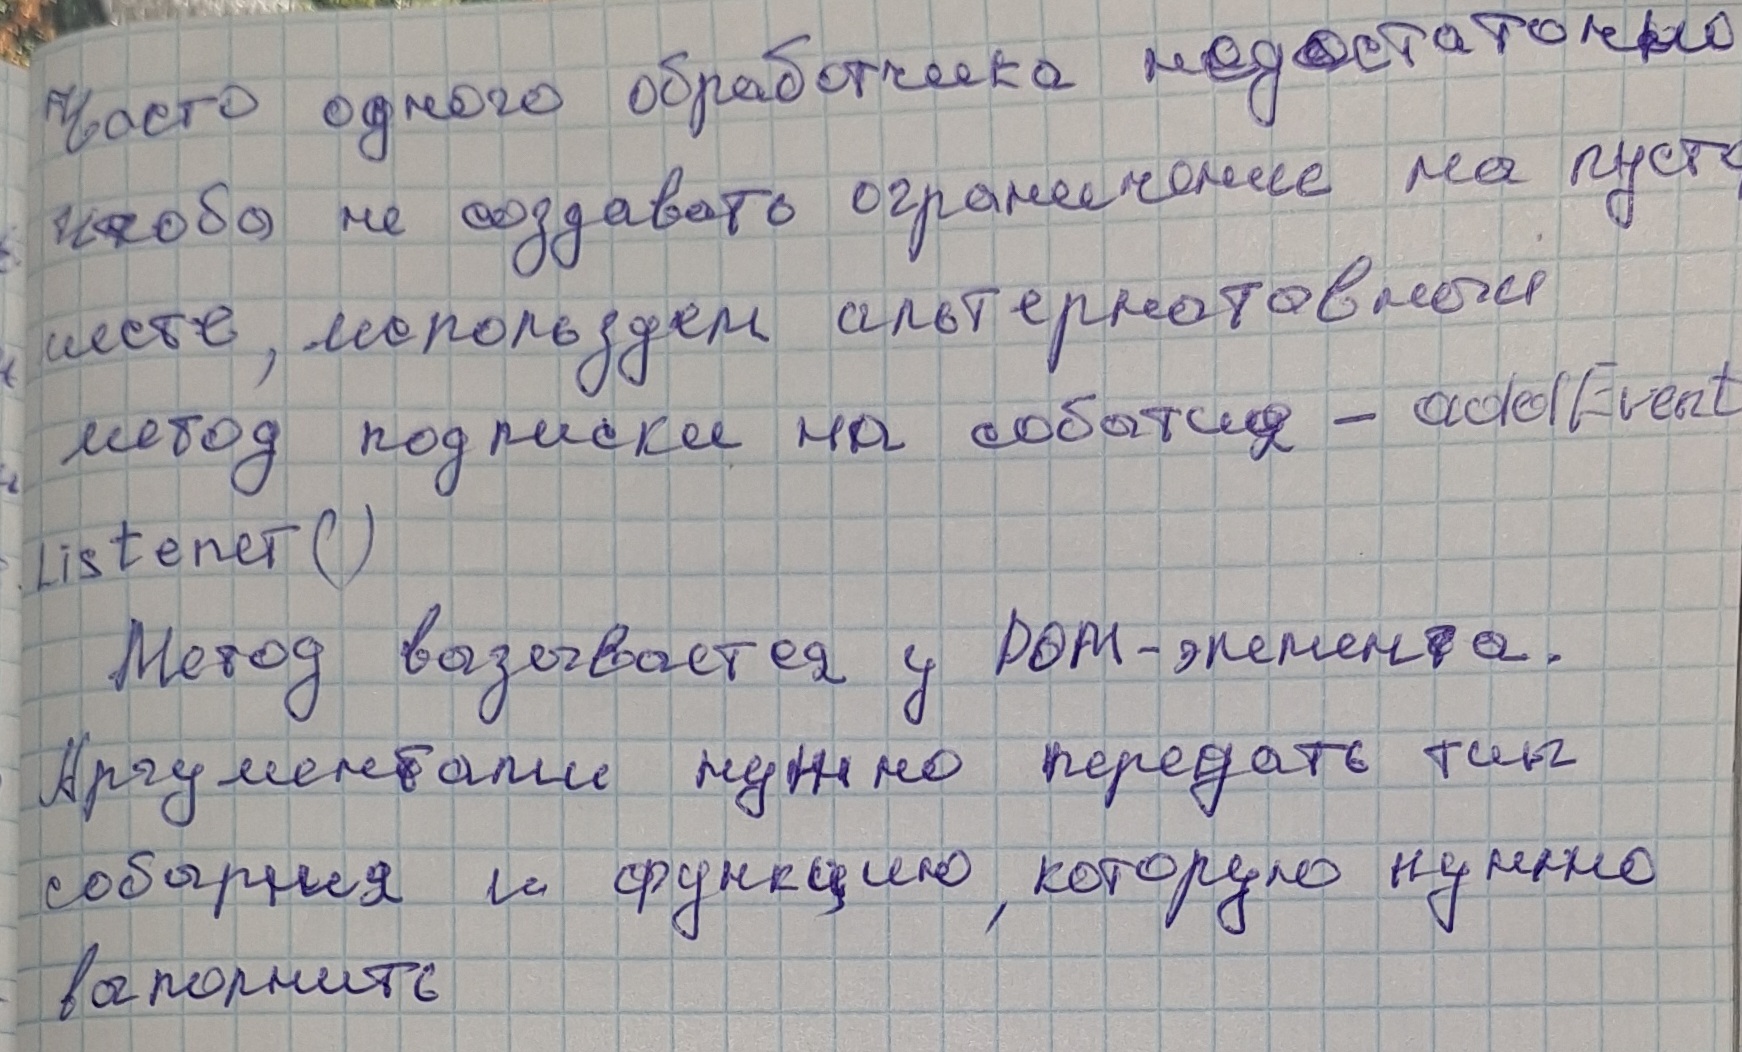 Часто одного обработчика недостаточно
чтобы не создавать ограничение на пусто
месте, используем альтернатовный
метод подписки на события - addEvent
Listener()
Метод вызывается у DOM-элемента.
Аргументами нужно передать тип
события и функцию, которую нужно
выполнить